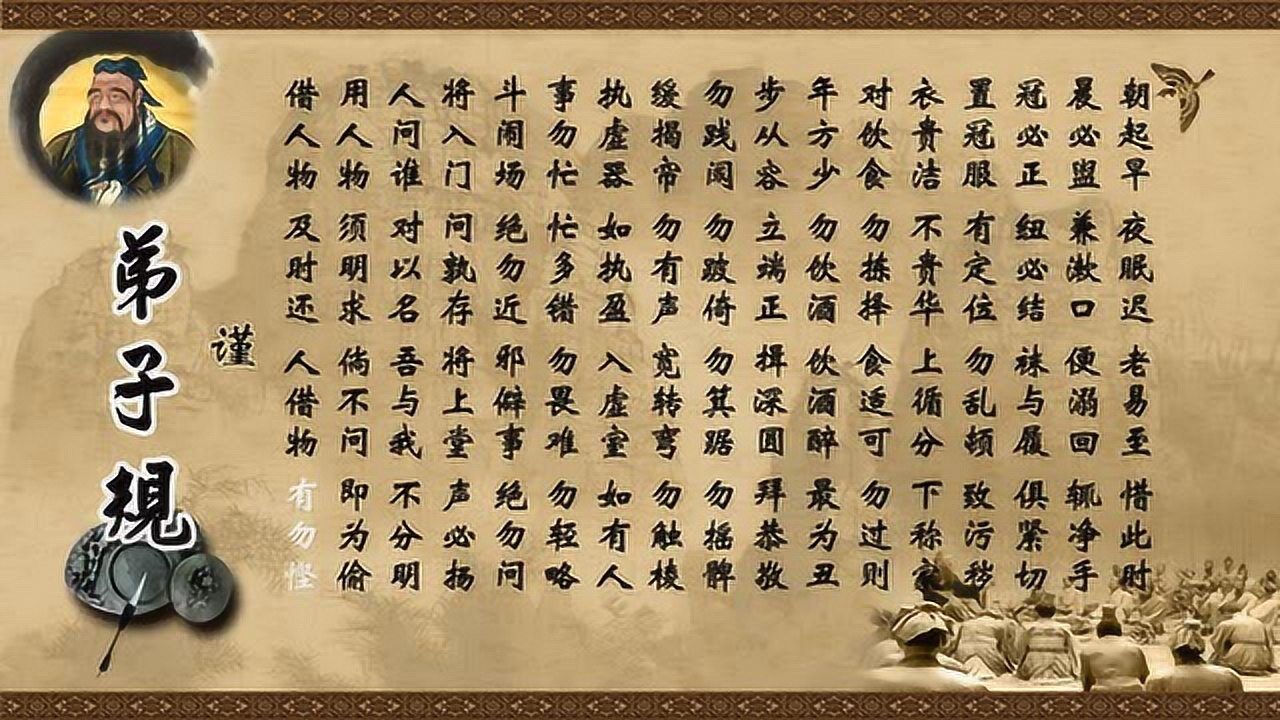 弟子規
谨
朝起早 夜眠迟 老易至 惜此时
晨必盟 兼漱口 便溺回 辄净手
冠必正 纽必结 袜与履 俱紧切
置冠服 有定位 勿乱顿 致污秽
衣贵洁 不贵华 上循分 下称家
对饮食 勿拣择 食适可 勿过则
年方少 勿饮酒 饮酒醉 最为丑
步从容 立端正 揖深圆 拜恭敬
勿践阈 勿跛倚 勿箕踞 勿摇髀
缓揭帝 勿有声 宽转弯 勿触棱
执虚器 如执盈 入虚室 如有人
事勿忙 忙多错 勿畏难 勿轻略
斗闹场 绝勿近 邪僻事 绝勿问
将入门 问孰存 将上堂 声必扬
人问谁 对以名 吾与我 不分明
用人物 须明求 倘不问 即为偷
借人物 及时还 人借物 有勿悭